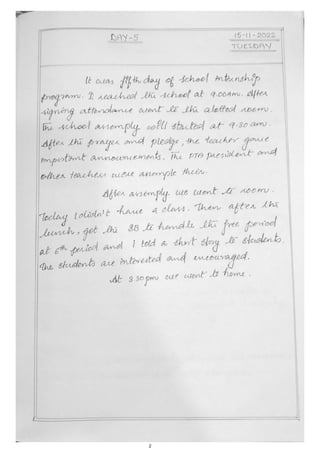 DAY-5
15-11-2022
TUESDAY
It was fifth day of school internship
program. I reached the school at 9.00am. After
signing attendance went to the alotted room.
The school assemply will started at 9.30am.
After the prayer and pledge, the teacher gave
important announcements. The PTA president and
other teachers were assemple there.
After assemply we went to room.
Today I didn't have a class. Then after the
lunch, got the 8B to handle the free period
at 6th period and I told a short stoy to students.
The students are interested and encouraged.
At 3.30pm we went to home.
2